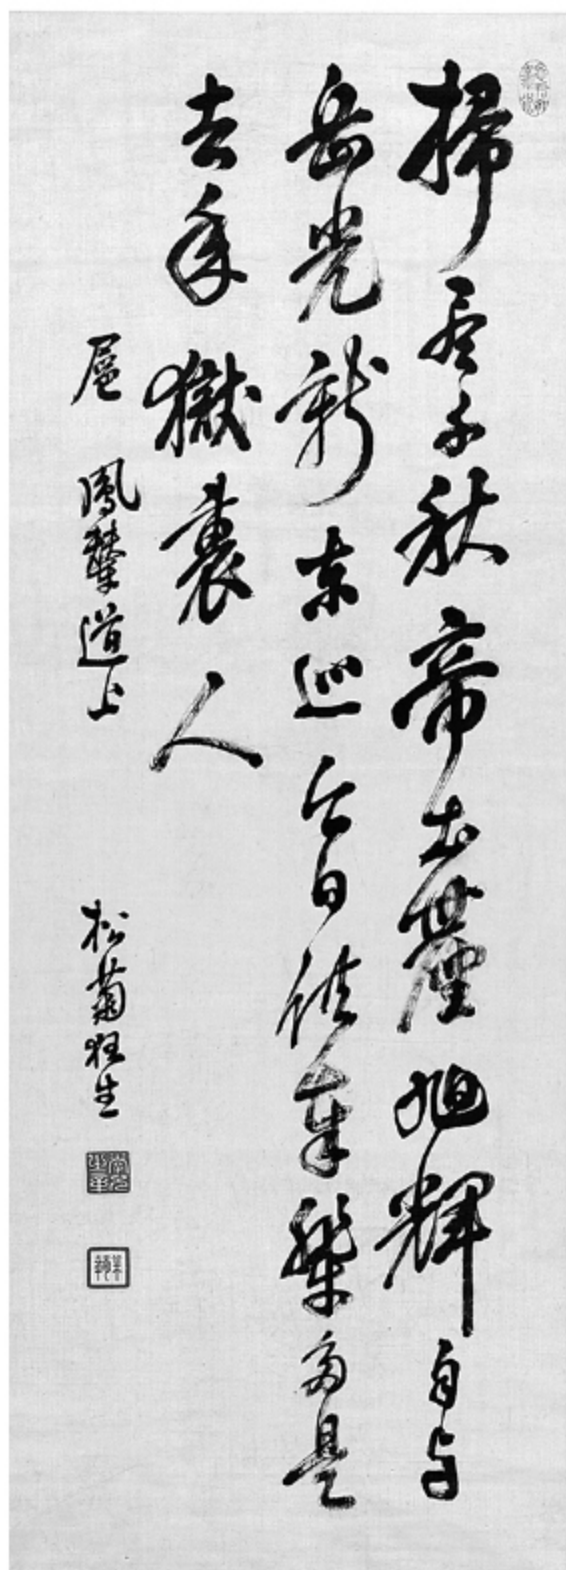 掃尽千秋帝土塵旭輝自与
岳光新東巡今日供奉輦多是
去年獄裏人
扈鳳輦道上 松菊狂生